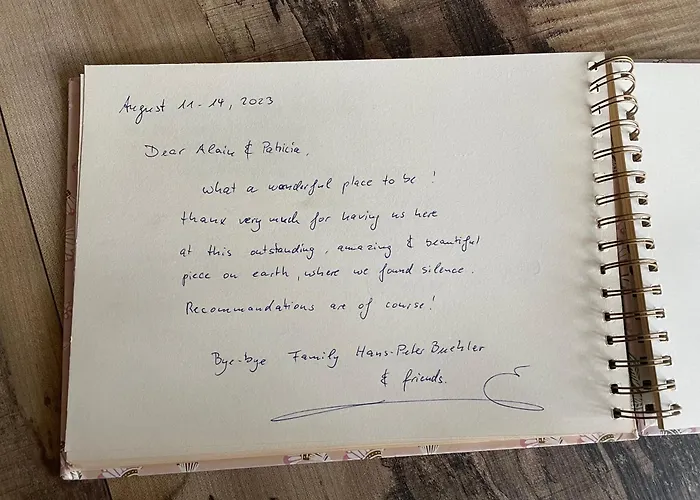 August 11-14, 2023
Dear Alain & Patricia,
what a wonderful place to be !
thanx very much for having us here
at this outstanding, amazing & beautiful
piece on earth, where we found silence.
Recommandations are of course!
Bye-bye Family Hans-Peter Buehler
& friends.